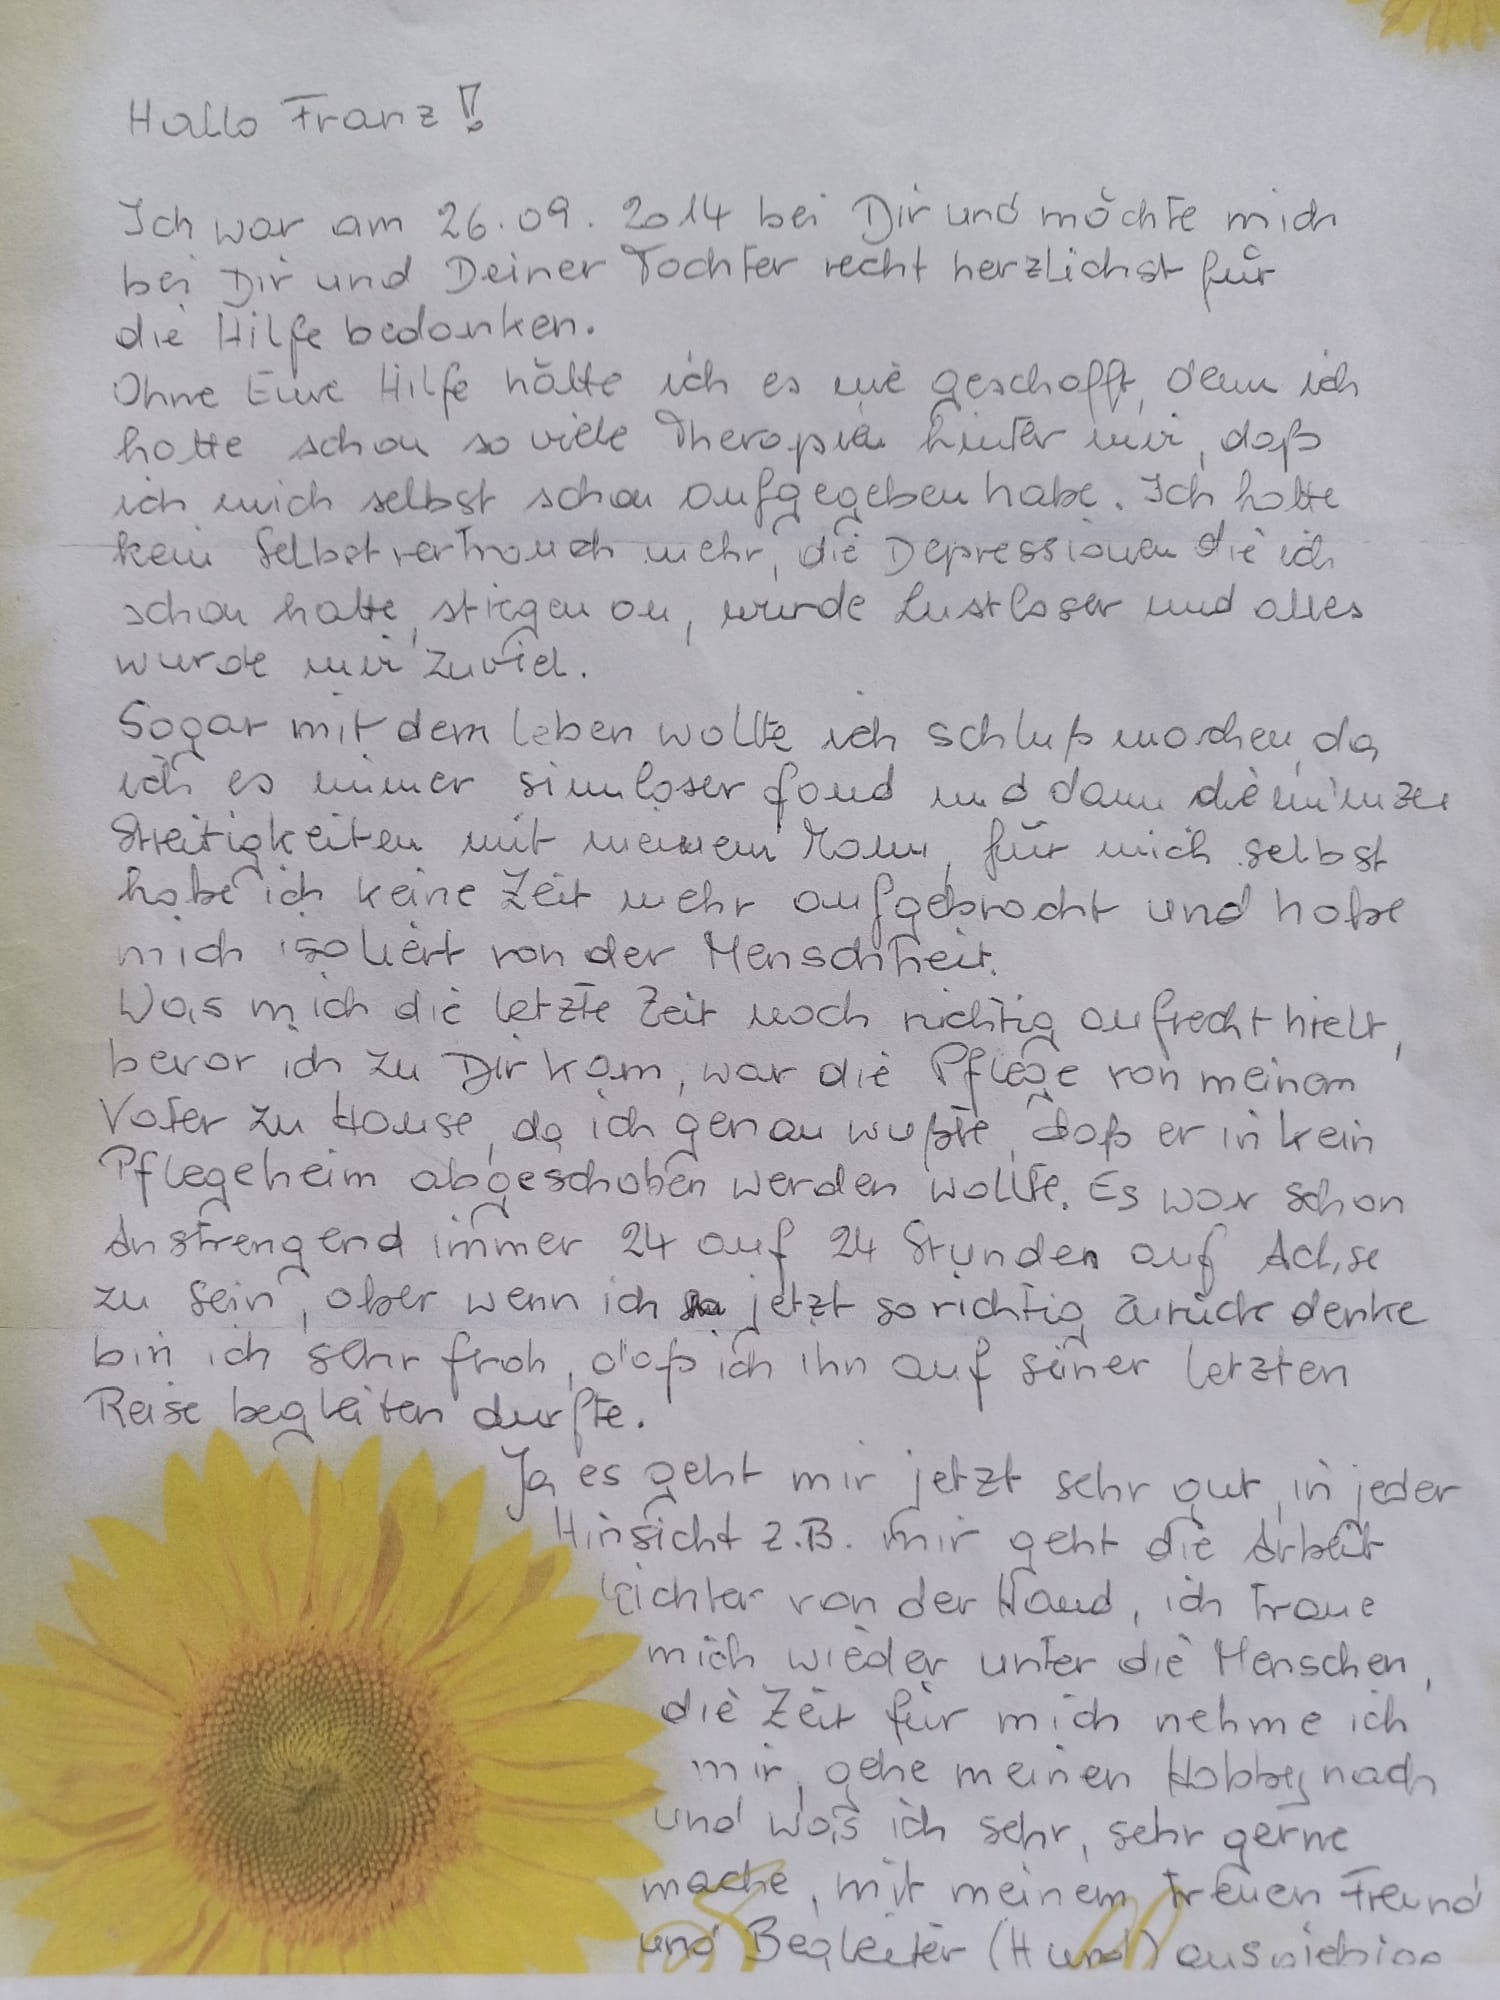 Hallo Franz!
Ich war am 26.09.2014 bei Dir und möchte mich
bei Dir und Deiner Tochter recht herzlichst für
die Hilfe bedanken.
Ohne Eure Hilfe hätte ich es nie geschafft, denn ich
hatte schon so viele Therapien hinter mir, daß
ich mich selbst schon aufgegeben habe. Ich hatte
kein Selbstvertrauen mehr, die Depressionen die ich
schon hatte, stiegen an, wurde Lustloser und alles
wurde mir zuviel.
Sogar mit dem leben wollte ich schluß machen, da
ich es immer sinnloser fand und dann die
Streitigkeiten mit meinem Mann, für mich selbst
habe ich keine Zeit mehr aufgebracht und habe
mich isoliert von der Menschheit.
Was mich die letzte Zeit noch richtig aufrecht hielt,
bevor ich zu Dir kam, war die Pflege von meinem
Vater zu Hause, da ich genau wußte, daß er in kein
Pflegeheim abgeschoben werden wollte. Es war schon
Anstrengend immer 24 auf 24 Stunden auf Achse
zu sein, aber wenn ich jetzt so richtig zurück denke
bin ich sehr froh, daß ich ihn auf seiner letzten
Reise begleiten durfte.
Ja es geht mir jetzt sehr gut, in jeder
Hinsicht z.B. mir geht die Arbeit
leichter von der Hand, ich traue
mich wieder unter die Menschen,
die Zeit für mich nehme ich
mir, gehe meinen Hobby nach
und was ich sehr, sehr gerne
mache, mit meinem treuen Freund
und Begleiter (Hund)